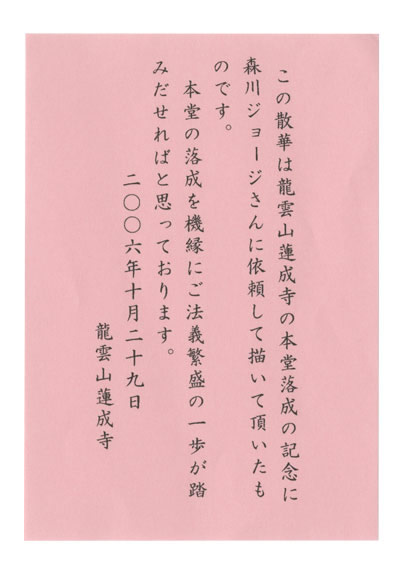 この散華は龍雲山蓮成寺の本堂落成の記念に
森川ジョージさんに依頼して描いて頂いたも
のです。
本堂の落成を機縁にご法義繁盛の一歩が踏
みだせればと思っております。
二〇〇六年十月二十九日
龍雲山蓮成寺